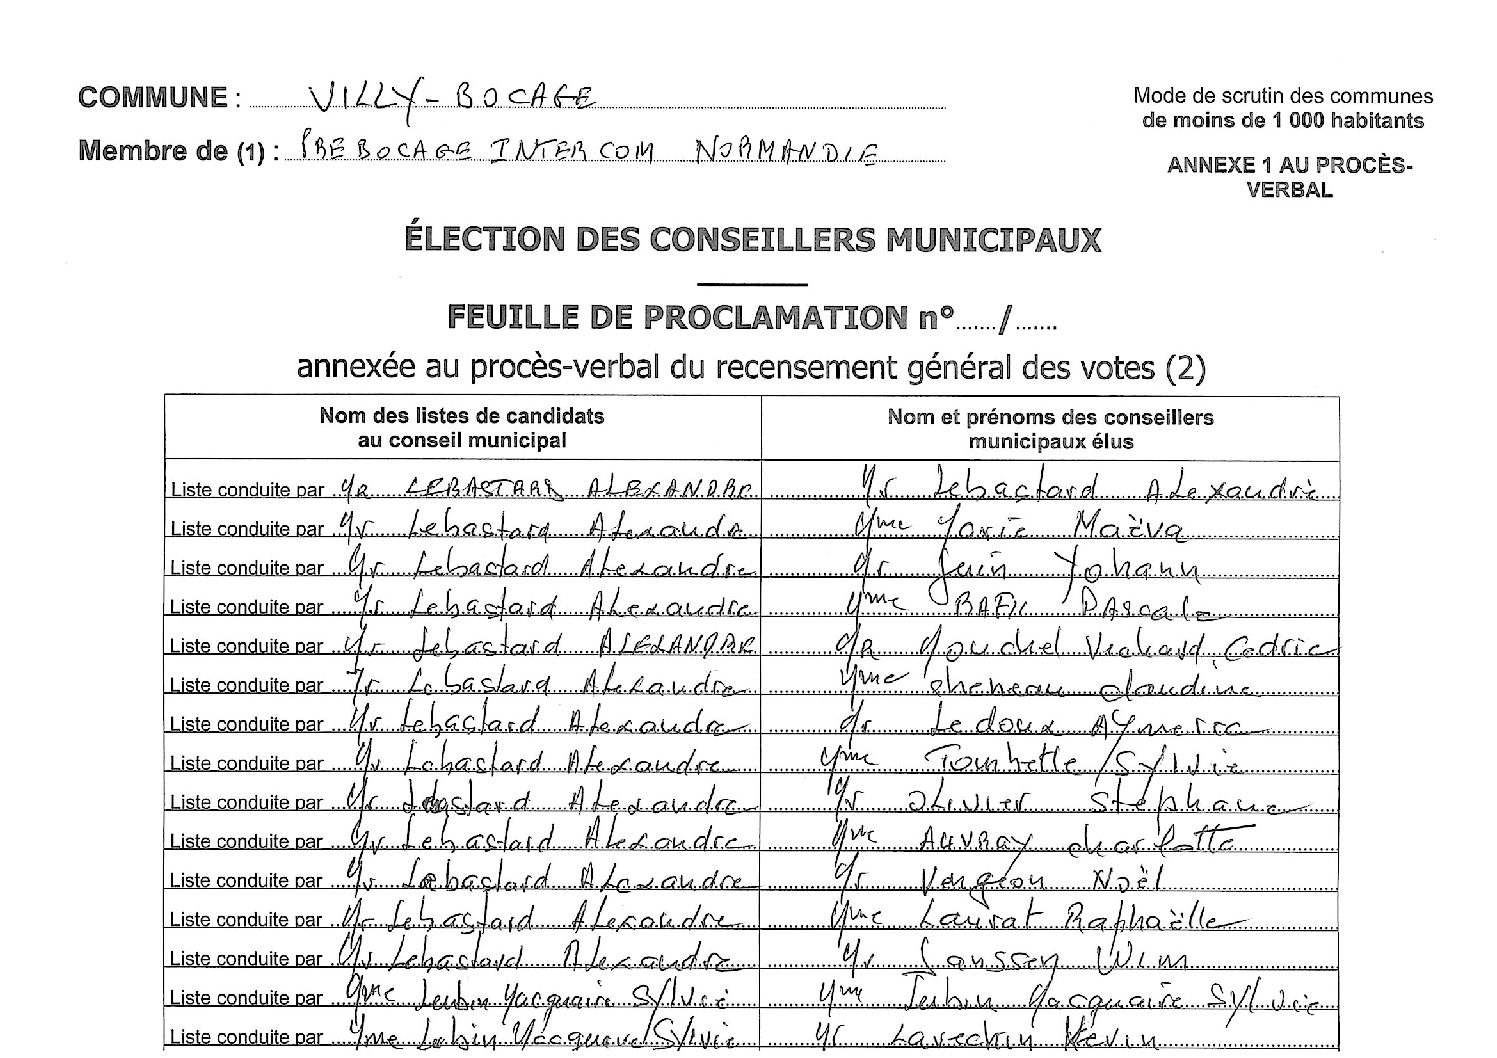 COMMUNE : VILLY-BOCAGE
Mode de scrutin des communes
de moins de 1 000 habitants
Membre de (1) : PRE BOCAGE INTERCOM NORMANDIE
ANNEXE 1 AU PROCÈS-
VERBAL
ÉLECTION DES CONSEILLERS MUNICIPAUX
FEUILLE DE PROCLAMATION n°....../.......
annexée au procès-verbal du recensement général des votes (2)
Nom des listes de candidats
au conseil municipal
Nom et prénoms des conseillers
municipaux élus
Liste conduite par Mr LEBASTARD ALEXANDRE Mr Lebastard Alexandre
Liste conduite par Mr Lebastard Alexandre Mme Maëva
Liste conduite par Mr Lebastard Alexandre Mr Yohann
Liste conduite par Mr Lebastard Alexandre Mme Pascale
Liste conduite par Mr Lebastard ALEXANDRE Mr Cedric
Liste conduite par Mr Lebastard Alexandre Mme cheneau claudine
Liste conduite par Mr Lebastard Alexandre Mr Ledoux Aymeric
Liste conduite par Mr Lebastard Alexandre Mme Tourbette Sylvie
Liste conduite par Mr Lebastard Alexandre Mr Olivier Stéphane
Liste conduite par Mr Lebastard Alexandre Mme AUVRAY charlotte
Liste conduite par Mr Lebastard Alexandre Mr Vengeon Noël
Liste conduite par Mr Lebastard Alexandre Mme Laurat Raphaëlle
Liste conduite par Mr Lebastard Alexandre Mr Wim
Liste conduite par Mme Sylvie Mme Sylvie
Liste conduite par Mme Sylvie Mr Kévin